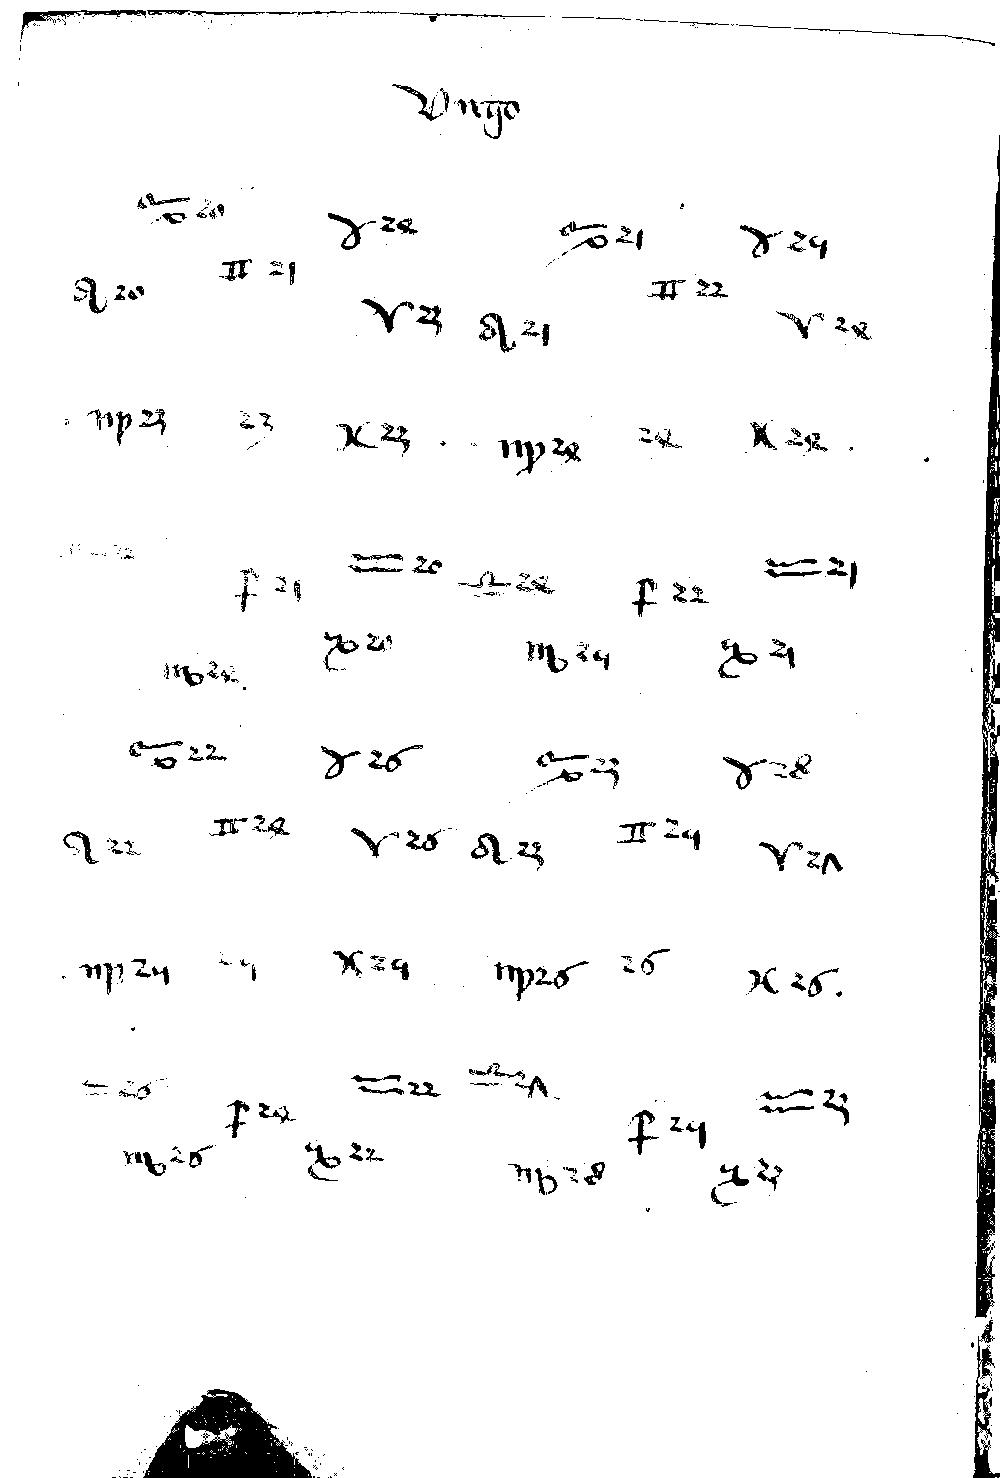 Virgo
♋ 20 ♉ 24 ♋ 21 ♉ 25
♌ 20 ♊ 21 ♈ 23 ♌ 21 ♊ 22 ♈ 24
♍ 23 23 ♓ 23 ♍ 24 24 ♓ 24
♐ 21 ♒ 20 ♎ 24 ♐ 22 ♒ 21
♏ 24 ♑ 20 ♏ 25 ♑ 21
♋ 22 ♉ 26 ♋ 23 ♉ 28
♌ 22 ♊ 24 ♈ 26 ♌ 23 ♊ 25 ♈ 27
♍ 25 25 ♓ 25 ♍ 26 26 ♓ 26
♎ 26 ♐ 24 ♒ 22 ♎ 27 ♐ 25 ♒ 23
♏ 26 ♑ 22 ♏ 28 ♑ 23